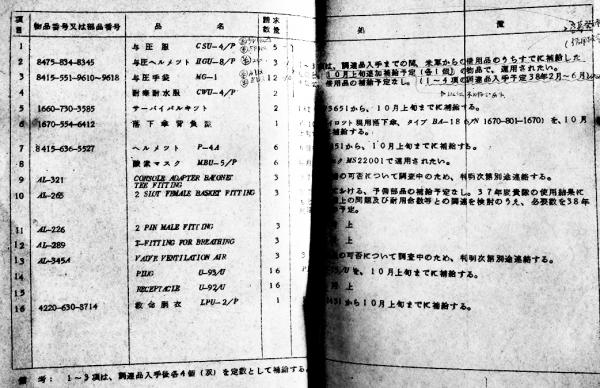 項目 物品番号又は部品番号 品名 請求数量 処置
1 与圧服 CSU-4/P 5
2 8475-834-8345 与圧ヘルメット HGU-8/P
3 8415-551-9610~9618 与圧手袋 MG-1 12
4 耐寒耐水服 CWU-4/P 2
項は、調達品入手までの間、米軍からの使用品のうちすでに補給した
10月上旬追加補給予定(各1個)の物品で、運用されたい。
使用品の補給予定なし。(1~4項の調達品入手予定38年2月~6月)
5 1660-730-3585 サーバイバルキット 2
から、10月上旬までに補給する。
6 1670-554-6412 落下傘背負袋 1
現用落下傘、タイプ BA-18 S/N 1670-801-1670)を、10月
に補給する。
7 8415-636-5527 ヘルメット P-4A 6
から、10月上旬までに補給する。
8 酸素マスク MBU-5/P 6
MS22001で運用されたい。
9 AL-321 CONSOLE ADAPTER BAYONET TEE FITTING 3
の可否について調査中のため、判明次第別途連絡する。
10 AL-265 2 SLOT FEMALE BASKET FITTING 3
における、予備部品の補給予定なし。37年度貴隊の使用結果に
上の問題及び耐用命数等との関連を検討のうえ、必要数を38年
予定。
11 AL-226 2 PIN MALE FITTING 3 上
12 AL-289 T-FITTING FOR BREATHING 3 上
13 AL-345A VALVE VENTILATION AIR 3
の可否について調査中のため、判明次第別途連絡する。
14 PLUG U-93/U 16
を、10月上旬までに補給する。
15 RECEPTACLE U-92/U 16 上
16 4220-630-8714 救命胴衣 LPU-2/P 1
から10月上旬までに補給する。
備考: 1~3項は、調達品入手後各4個(双)を定数として補給する。